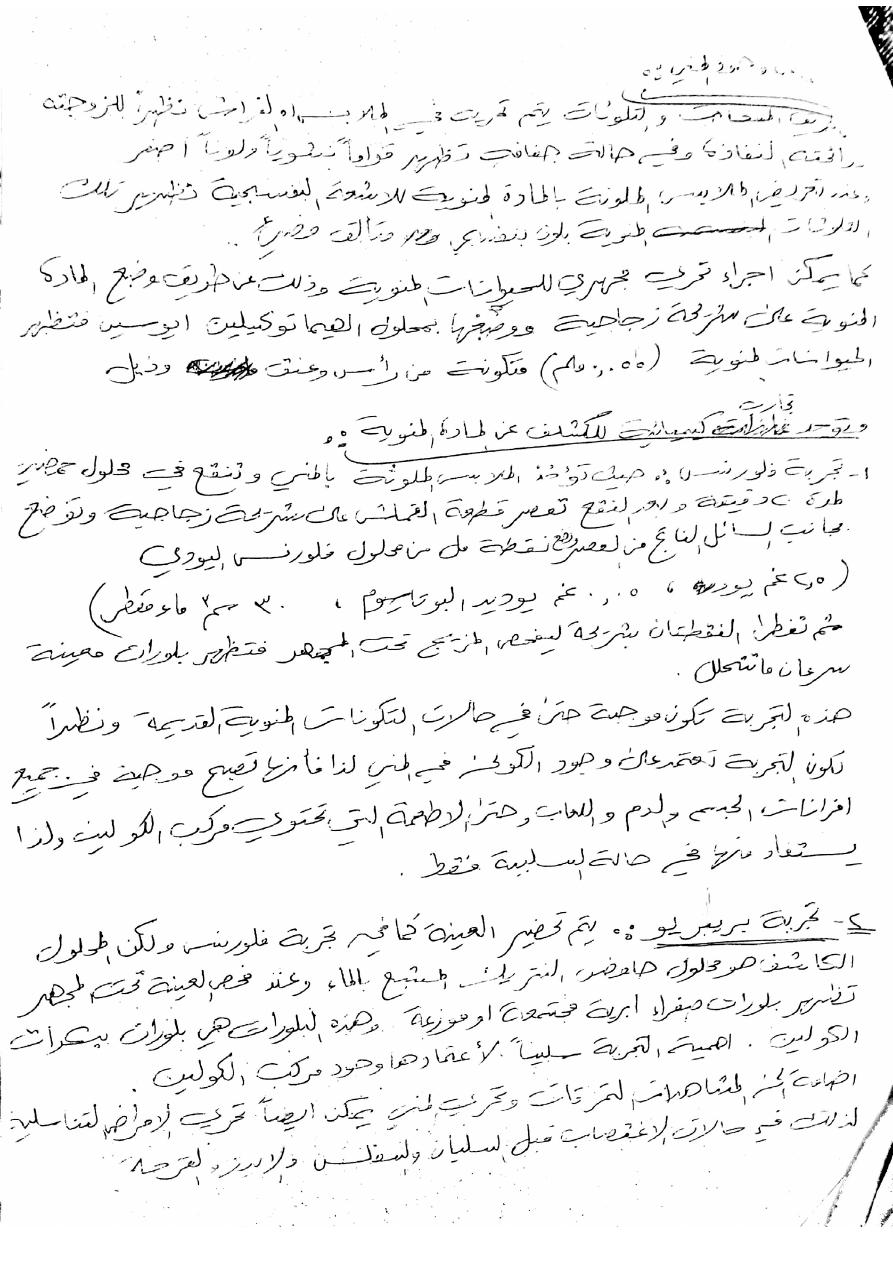 وجود المني :-
البقع والتلوثات يتم تحريه في الملابس او الفراش نظراً للزوجته
رائحته النفاذة وفي حالة جفافه تظهر قواماً نشوياً ولوناً اصفر
وعند تعريض الملابس الملوثة بالمادة المنوية للاشعة البنفسجية تظهر تلك
التلوثات المنوية بلون بنفسجي متألق مضيء .
كما يمكن اجراء تحري مجهري للحيوانات المنوية وذلك عن طريق وضع المادة
المنوية على شريحة زجاجية ووصبغها بمحلول الهيماتوكيلين ايوسين فتظهر
الحيوانات المنوية (٠,٠٥٥ ملم) متكونة من رأس وعنق وذيل
تجارب
وتوجد كيميائية للكشف عن المادة المنوية :-
١- تجربة فلورنس :- حيث تؤخذ الملابس الملوثة بالمني وتنقع في محلول حمضي
لمدة دقيقة وبعد النقع تعصر قطعة القماش على شريحة زجاجية وتوضع
بجانب السائل الناتج من العصر نقطة من محلول فلورنس اليودي
غم يود ، ٠,٠٥ غم يوديد البوتاسيوم ، ٣٠ سم٣ ماء مقطر)
ثم تغطى النقطتان بشريحة ليفحص المزيج تحت المجهر فتظهر بلورات معينة
سرعان ما تتحلل .
هذه التجربة تكون موجبة حتى في حالات التكونات المنوية القديمة ونظراً
لكون التجربة تعتمد على وجود الكولين في المني لذا فأنها تصبح موجبة في جميع
افرازات الجسم والدم واللعاب وحتى الاطعمة التي تحتوي مركب الكولين ولذا
يستفاد منها في حالة السلبية فقط .
٢- تجربة بربريو :- يتم تحضير العينة كما في تجربة فلورنس ولكن المحلول
الكاشف هو محلول حامض النتريك المشبع بالماء وعند فحص العينة تحت المجهر
تظهر بلورات صفراء ابرية مجتمعة او موزعة وهذه البلورات هي بلورات بيكرات
الكولين . اهمية التجربة سلبياً لأعتمادها وجود مركب الكولين .
اضافة الى المشاهدات التمزقات وتحري المني يمكن ايضاً تحري الامراض التناسلية
لذلك في حالات الاغتصاب قبل السيلان والسفلس والايدز والقرحة